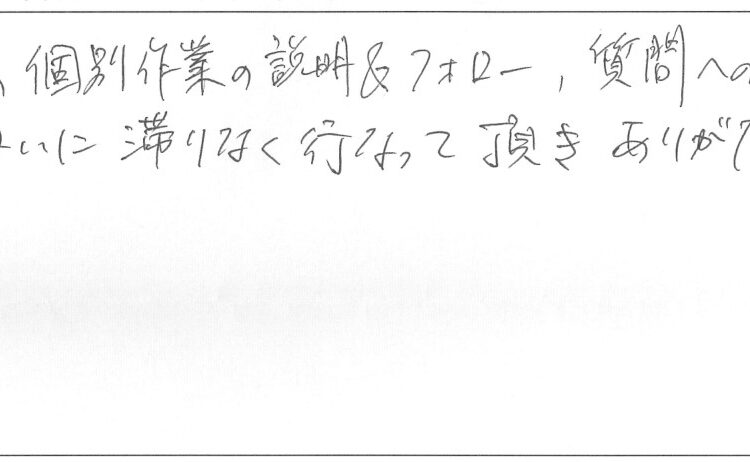 、個別作業の説明&フォロー,質問への
いに滞りなく行なって頂きありがと